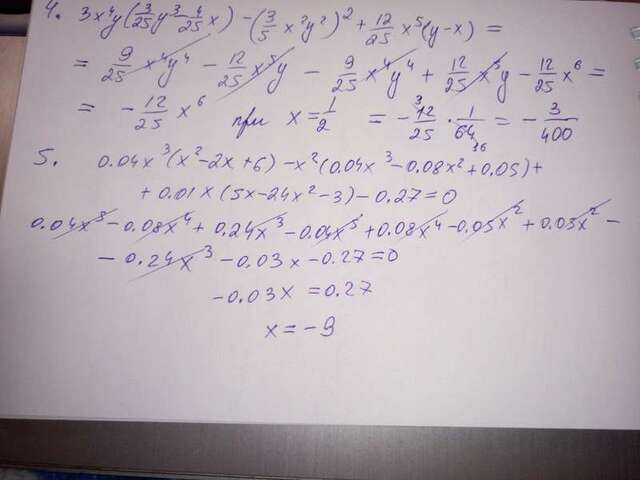 4. 3x⁴y(3/25 y³ - 4/25 x) - (3/5 x²y²)² + 12/25 x⁵(y-x) =
= 9/25 x⁴y⁴ - 12/25 x⁵y - 9/25 x⁴y⁴ + 12/25 x⁵y - 12/25 x⁶ =
= - 12/25 x⁶ при x = 1/2 = - 12/25 · 1/64 = - 3/400
5. 0.04x³(x²-2x+6) - x²(0.04x³-0.08x²+0.05)+
+ 0.01x(5x-24x²-3) - 0.27=0
0.04x⁵-0.08x⁴+0.24x³-0.04x⁵+0.08x⁴-0.05x²+0.05x²-
- 0.24x³ - 0.03x - 0.27 = 0
-0.03x = 0.27
x = - 9